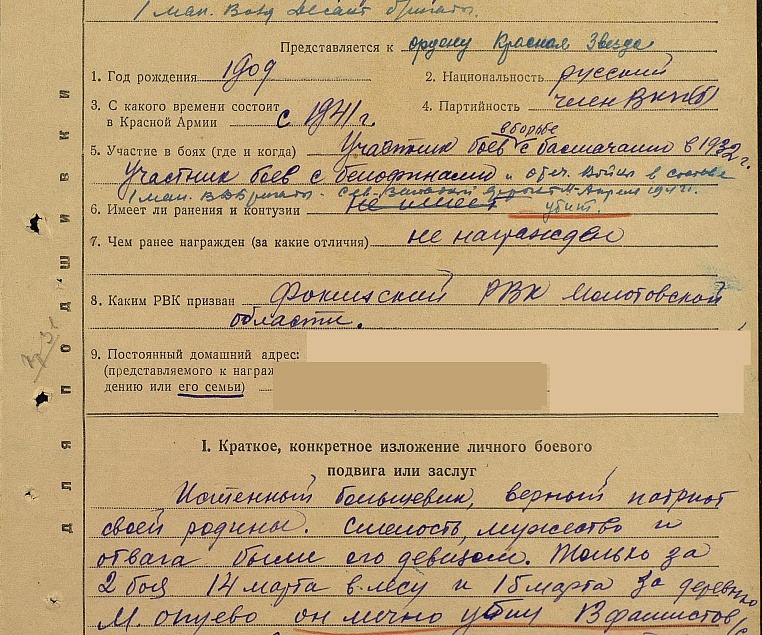 1 ман. Возд Десант бригады.
Представляется к ордену Красная Звезда
1. Год рождения 1909 2. Национальность русский
3. С какого времени состоит
в Красной Армии с 1941 г. 4. Партийность член ВКП(б)
в борьбе
5. Участие в боях (где и когда) Участник боев с басмачами в 1932 г.
Участник боев с белофинами и отеч. Войны в составе
1 ман. ВДБригады. Сев. Западный фронт
6. Имеет ли ранения и контузии не имеет убит.
7. Чем ранее награжден (за какие отличия) не награжден
8. Каким РВК призван Фокинский РВК Молотовской
области.
9. Постоянный домашний адрес:
(представляемого к награж
дению или его семьи)
I. Краткое, конкретное изложение личного боевого
подвига или заслуг
Истенный большевик, верный патриот
своей родины. Смелость, мужество и
отвага были его девизом. Только за
2 боя 14 марта в лесу и 15 марта за деревню
М. Опуево он лично убил фашистов,
ДЛЯ ПОДШИВКИ